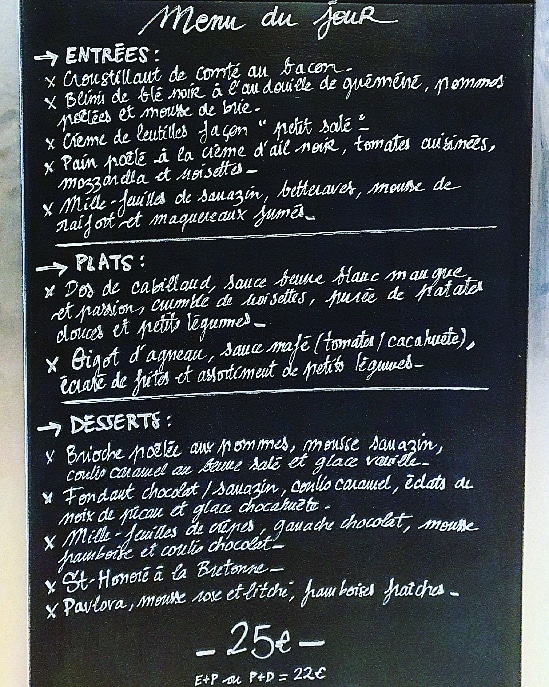 Menu du jour
→ ENTRÉES :
x Croustillant de comté au bacon_
x Blini de blé noir à l'andouille de guéméné, pommes
poêlées et mousse de brie_
x Crème de lentilles façon "petit salé"_
x Pain poêlé à la crème d'ail noir, tomates cuisinées,
mozzarella et noisettes_
x Mille-feuilles de sarrazin, betteraves, mousse de
raifort et maquereaux fumés_
→ PLATS :
x Dos de cabillaud, sauce beurre blanc mangue
et passion, crumble de noisettes, purée de patates
douces et petits légumes_
x Gigot d'agneau, sauce mafé (tomates/cacahuète),
écrasé de frites et assortiment de petits légumes_
→ DESSERTS :
x Brioche poêlée aux pommes, mousse sarrazin,
coulis caramel au beurre salé et glace vanille_
x Fondant chocolat/sarrazin, coulis caramel, éclats de
noix de pécan et glace chocahuète_
x Mille-feuilles de crêpes, ganache chocolat, mousse
framboise et coulis chocolat_
x St-Honoré à la Bretonne_
x Pavlova, mousse rose et litchi, framboises fraîches_
_ 25€ _
E+P ou P+D = 22€